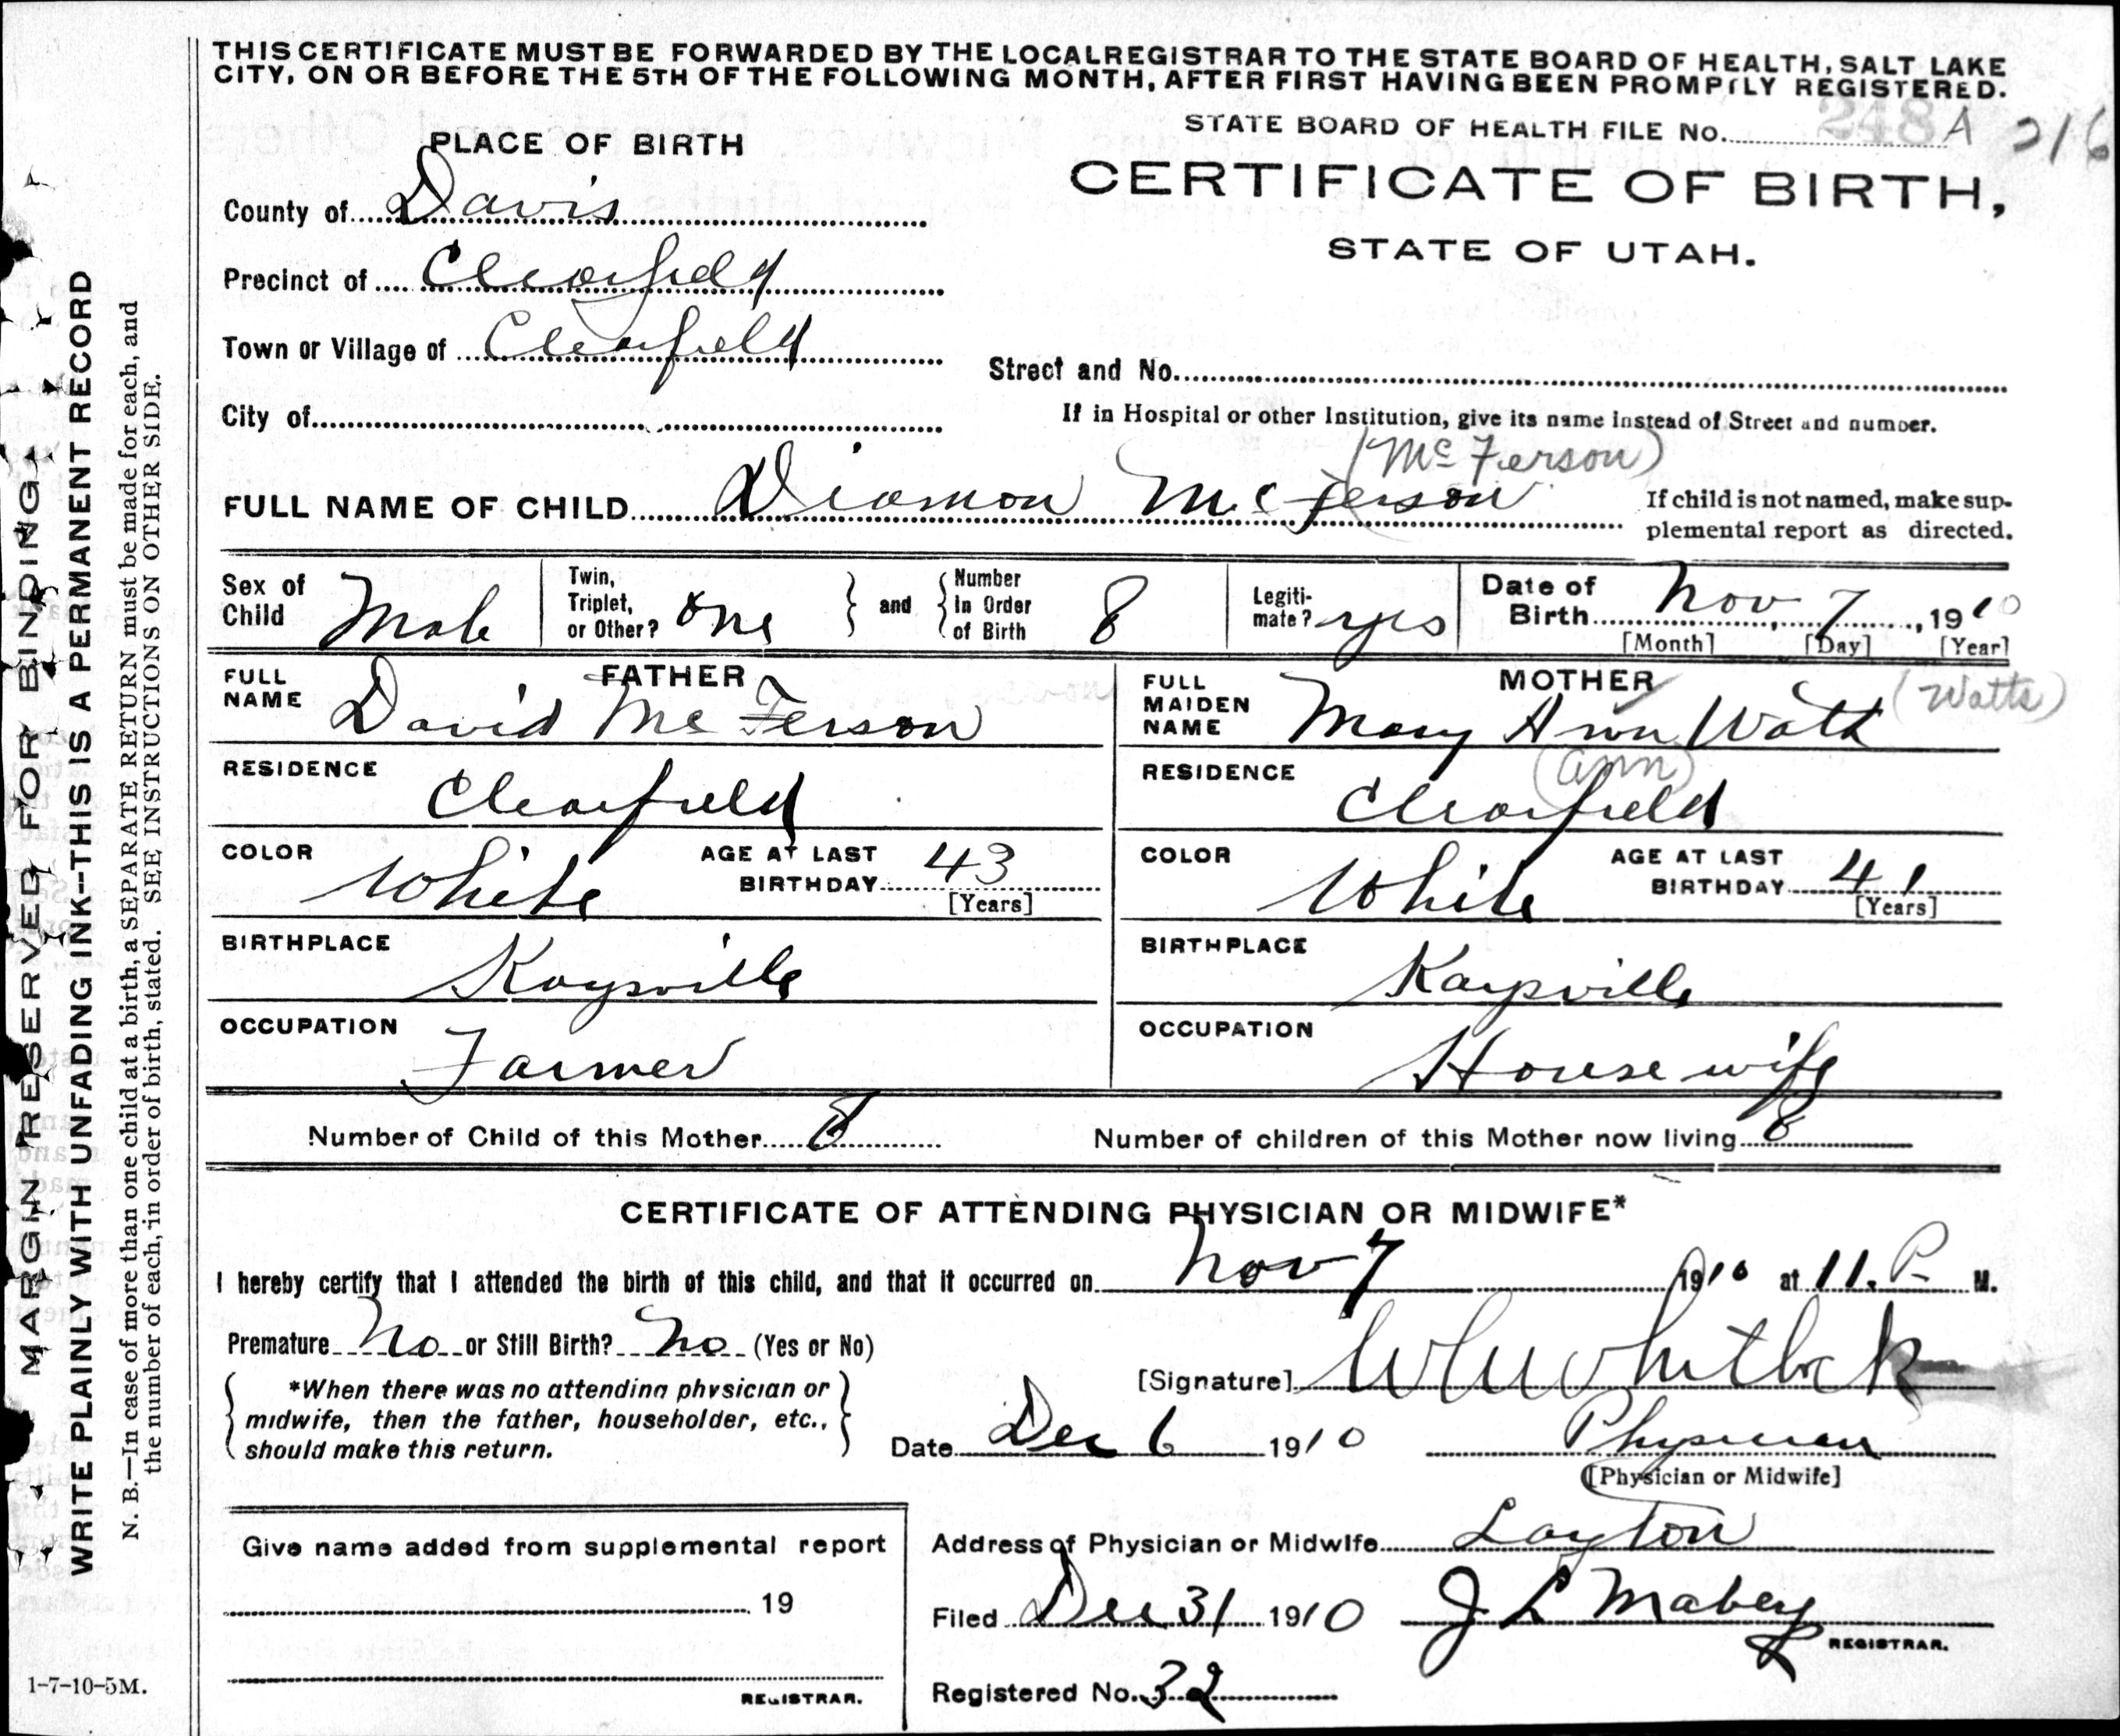 THIS CERTIFICATE MUST BE FORWARDED BY THE LOCAL REGISTRAR TO THE STATE BOARD OF HEALTH, SALT LAKE
CITY, ON OR BEFORE THE 5TH OF THE FOLLOWING MONTH, AFTER FIRST HAVING BEEN PROMPTLY REGISTERED.
STATE BOARD OF HEALTH FILE No. 248 A 216
PLACE OF BIRTH
CERTIFICATE OF BIRTH,
STATE OF UTAH.
County of Davis
Precinct of Clearfield
Town or Village of Clearfield
Street and No.
City of
If in Hospital or other Institution, give its name instead of Street and number.
(McFerson)
FULL NAME OF CHILD Diamon McFerson
If child is not named, make sup-
plemental report as directed.
Sex of Child Male
Twin, Triplet, or Other? one
and
Number in Order of Birth 8
Legiti-mate? yes
Date of Birth Nov 7, 1910
[Month] [Day] [Year]
FATHER
FULL NAME David McFerson
RESIDENCE
Clearfield
COLOR White
AGE AT LAST BIRTHDAY 43
[Years]
BIRTHPLACE
Kaysville
OCCUPATION
Farmer
MOTHER
FULL MAIDEN NAME Mary Ann Watt (Watts)
(ann)
RESIDENCE
Clearfield
COLOR White
AGE AT LAST BIRTHDAY 41
[Years]
BIRTHPLACE
Kaysville
OCCUPATION
House wife
Number of Child of this Mother 8
Number of children of this Mother now living 8
CERTIFICATE OF ATTENDING PHYSICIAN OR MIDWIFE*
I hereby certify that I attended the birth of this child, and that it occurred on Nov 7 1910 at 11. P M.
Premature No or Still Birth? No (Yes or No)
[Signature] Whitlock
*When there was no attending physician or
midwife, then the father, householder, etc.,
should make this return.
Date Dec 6 1910
Physician
[Physician or Midwife]
Give name added from supplemental report
19
REGISTRAR.
Address of Physician or Midwife Layton
Filed Dec 31 1910 J L Mabey
REGISTRAR.
Registered No. 32
1-7-10-5M.
MARGIN RESERVED FOR BINDING.
WRITE PLAINLY WITH UNFADING INK--THIS IS A PERMANENT RECORD
N. B.—In case of more than one child at a birth, a SEPARATE RETURN must be made for each, and
the number of each, in order of birth, stated. SEE INSTRUCTIONS ON OTHER SIDE.